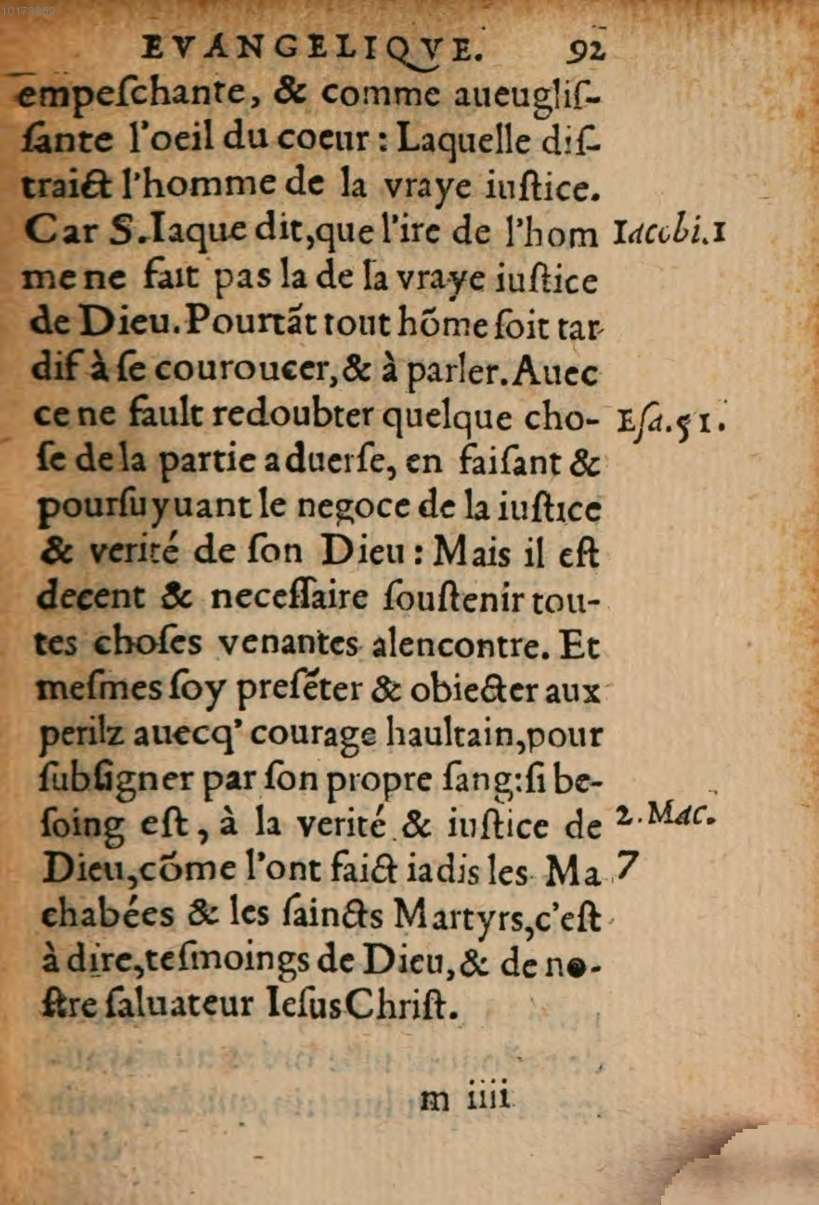 EVANGELIQVE. 92
empeſchante, & comme aueugliſ-
ſante l'oeil du coeur : Laquelle diſ-
traict l'homme de la vraye iuſtice.
Car S.Iaque dit,que l'ire de l'hom Iacobi.1
me ne fait pas la de la vraye iuſtice
de Dieu.Pourtãt tout hõme ſoit tar
dif à ſe couroucer,& à parler.Auec
ce ne fault redoubter quelque cho- Eſa.51.
ſe de la partie aduerſe, en faiſant &
pourſuyuant le negoce de la iuſtice
& verité de ſon Dieu : Mais il eſt
decent & neceſſaire ſouſtenir tou-
tes choſes venantes alencontre. Et
meſmes ſoy preſẽter & obiecter aux
perilz auecq' courage haultain,pour
ſubſigner par ſon propre ſang:ſi be-
ſoing eſt, à la verité & iuſtice de 2.Mac.
Dieu,cõme l'ont faict iadis les Ma 7
chabées & les ſaincts Martyrs,c'eſt
à dire,teſmoings de Dieu,& de no-
ſtre ſaluateur Ieſus Chriſt.
m iiii